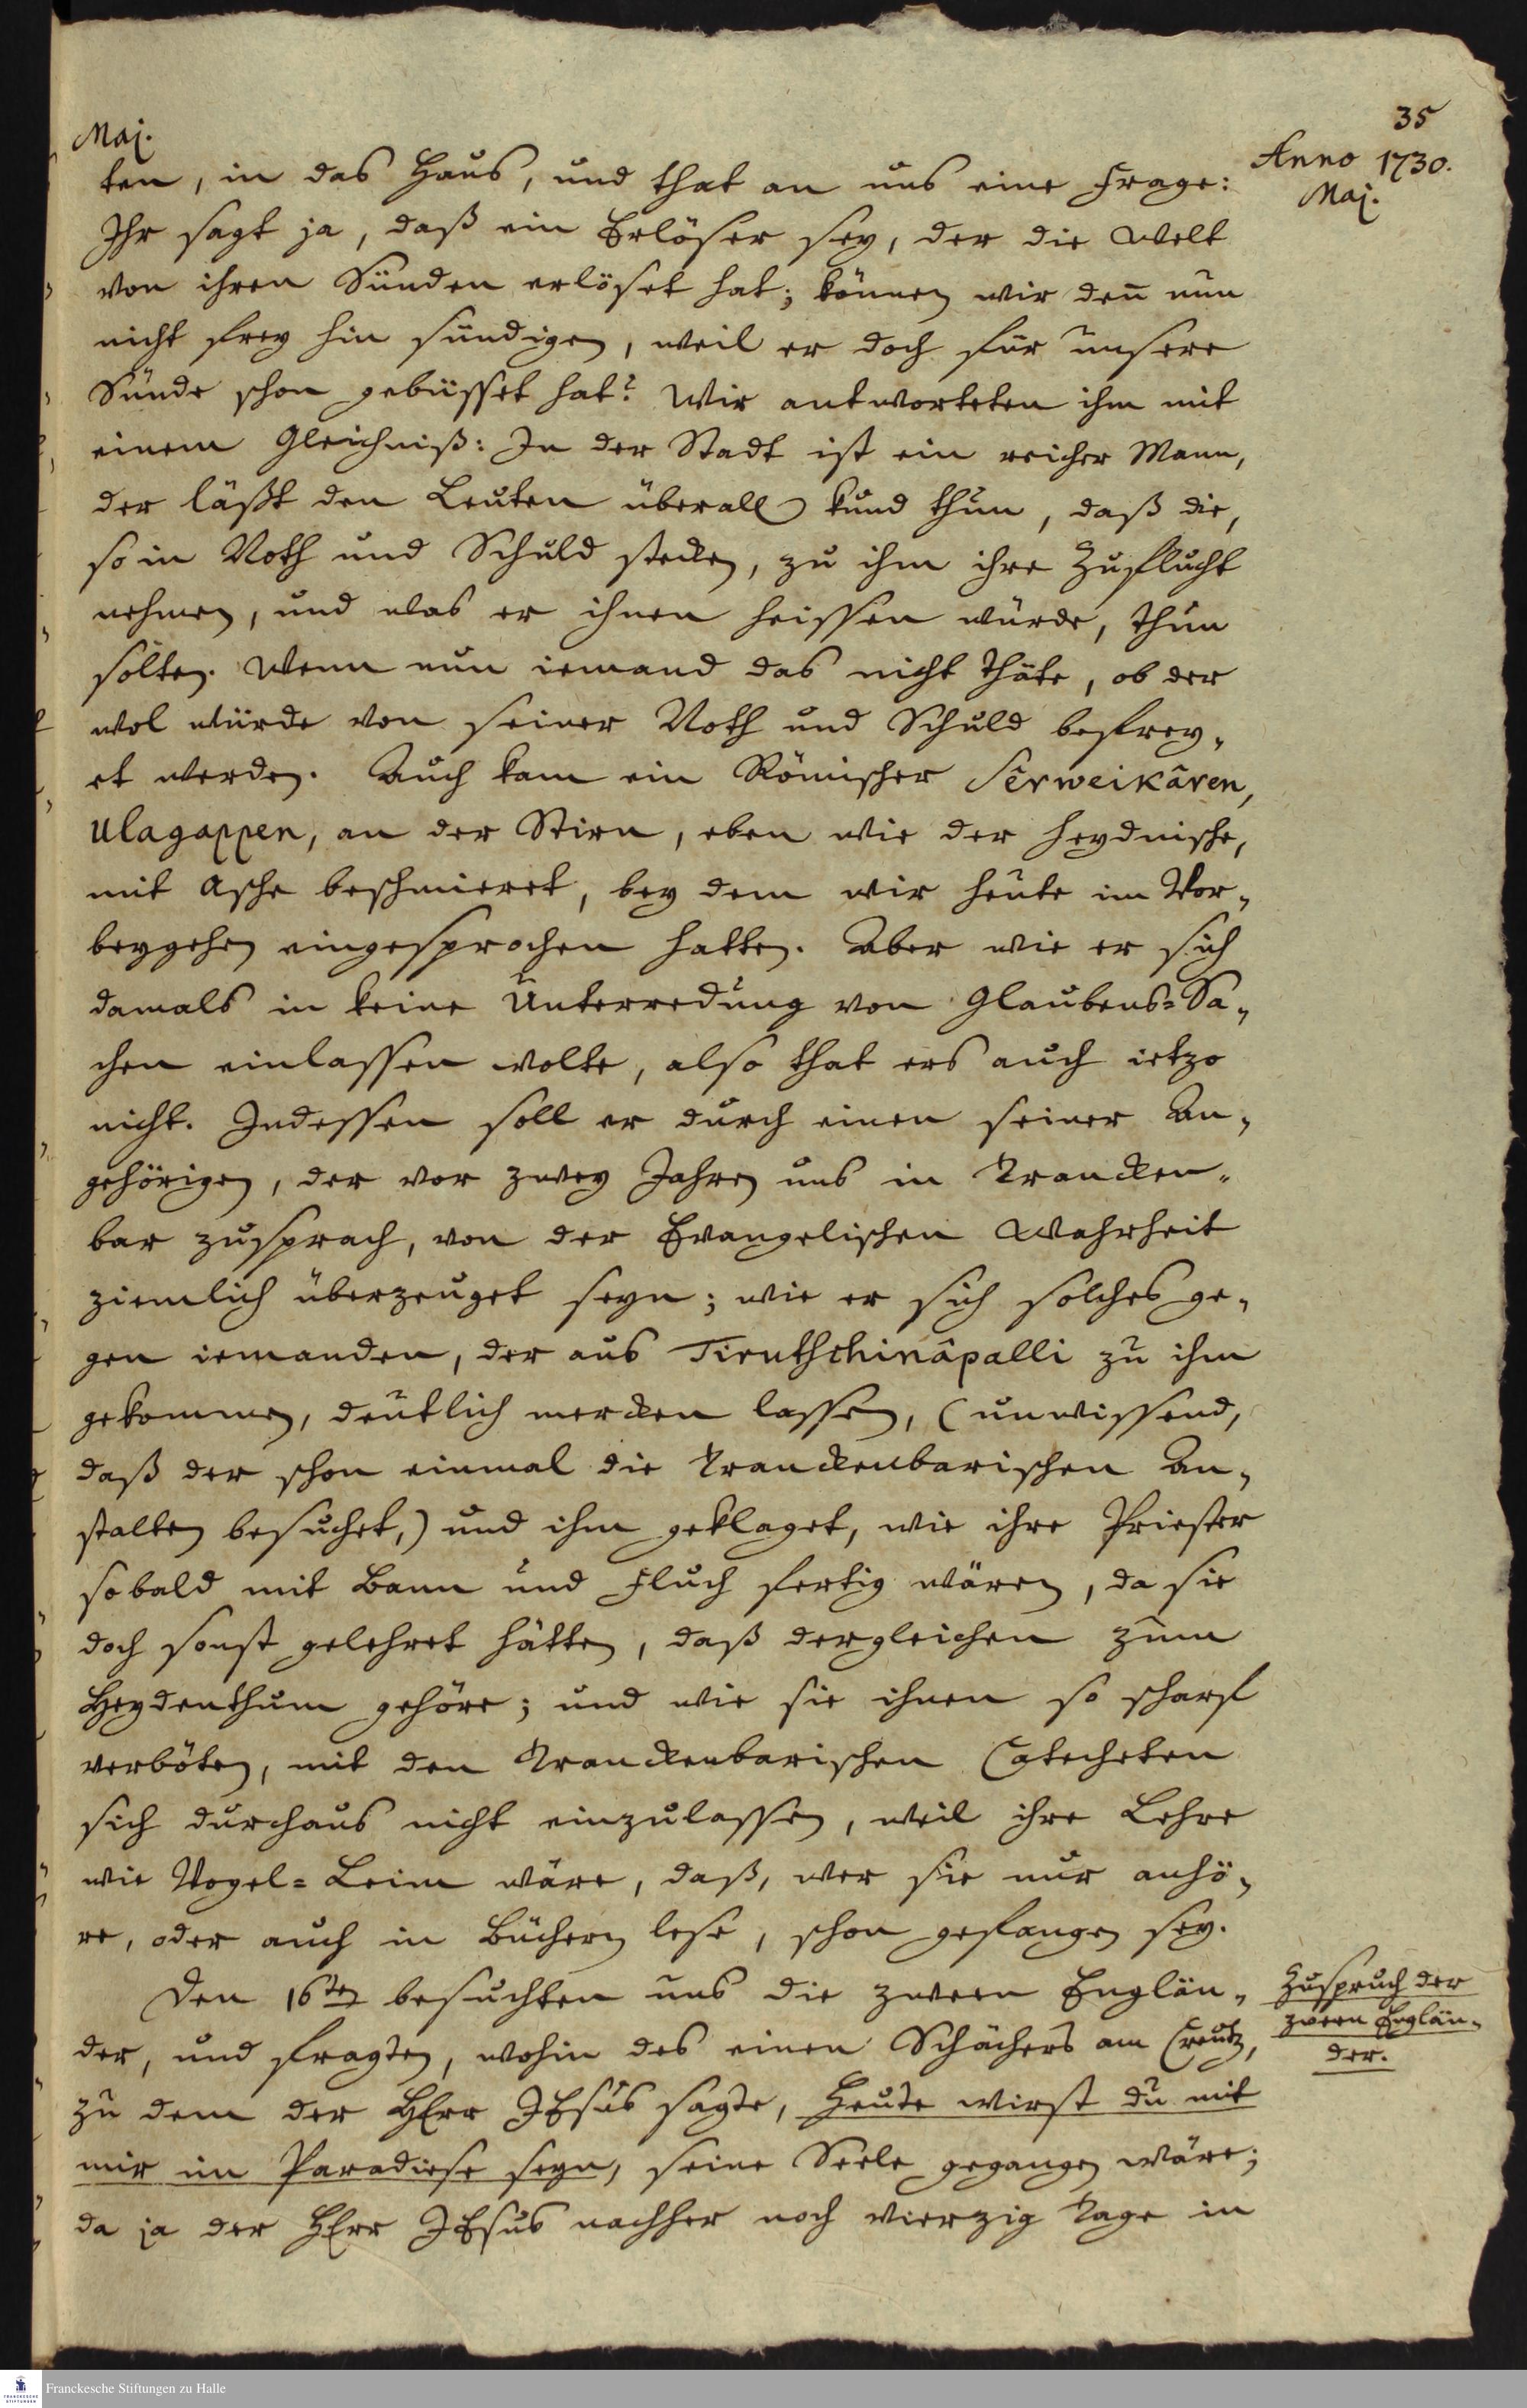 35
Maj.
Anno 1730.
Maj.
ten, in das Hauß, und that an uns eine Frage:
Ihr sagt ja, daß ein Erlöser sey, der die Welt
von ihren Sünden erlöset hat; können wir deñ nun
nicht frey hin sündigen, weil er doch für unsere
Sünde schon gebüsset hat? Wir antworteten ihm mit
einem Gleichniß: In der Stadt ist ein reicher Mann,
der läßt den Leuten überall kund thun, daß die,
so in Noth und Schuld stecken, zu ihm ihre Zuflucht
nehmen, und was er ihnen heissen würde, thun
solten. Wenn nun iemand das nicht thäte, ob der
wol würde von seiner Noth und Schuld befrey-
et werden. Auch kam ein Römischer Sêrweikâren,
Ulagappen, an der Stirn, eben wie der heydnische,
mit Asche beschmieret, bey dem wir heute im Vor-
beygehen eingesprochen hatten. Aber wie er sich
damals in keine Unterredung von Glaubens-Sa-
chen einlassen wolte, also that ers auch ietzo
nicht. Indessen soll er durch einen seiner An-
gehörigen, der vor zwey Jahren uns in Trancken-
bar zusprach, von der Evangelischen Wahrheit
ziemlich überzeuget seyn; wie er sich solches ge-
gen iemanden, der aus Tirutschinâpalli zu ihm
gekommen, deutlich mercken lassen, (unwissend,
daß der schon einmal die Tranckenbarischen An-
stalten besuchet,) und ihm geklaget, wie ihre Priester
sobald mit Bann und Fluch fertig wären, da sie
doch sonst gelehret hätten, daß dergleichen zum
Heydenthum gehöre; und wie sie ihnen so scharf
verböten, mit den Tranckenbarischen Catecheten
sich durchaus nicht einzulassen, weil ihre Lehre
wie Vogel-Leim wäre, daß, wer sie nur anhö-
re, oder auch in Büchern lese, schon gefangen sey.
Den 16ten besuchten uns die zween Englän-
der, und fragten, wohin des einen Schächers am Creutz,
zu dem der HErr JEsus sagte, Heute wirst du mit
mir im Paradiese seyn, seine Seele gegangen wäre;
da ja der HErr JEsus nachher noch vierzig Tage in
Zuspruch der
zween Englän-
der.
Franckesche Stiftungen zu Halle